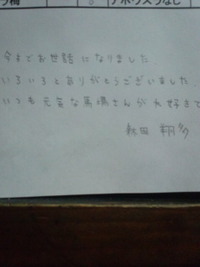 今までお世話になりました
いろいろとありがとうございました。
いつも元気な馬場さんが大好きで
秋田 翔多